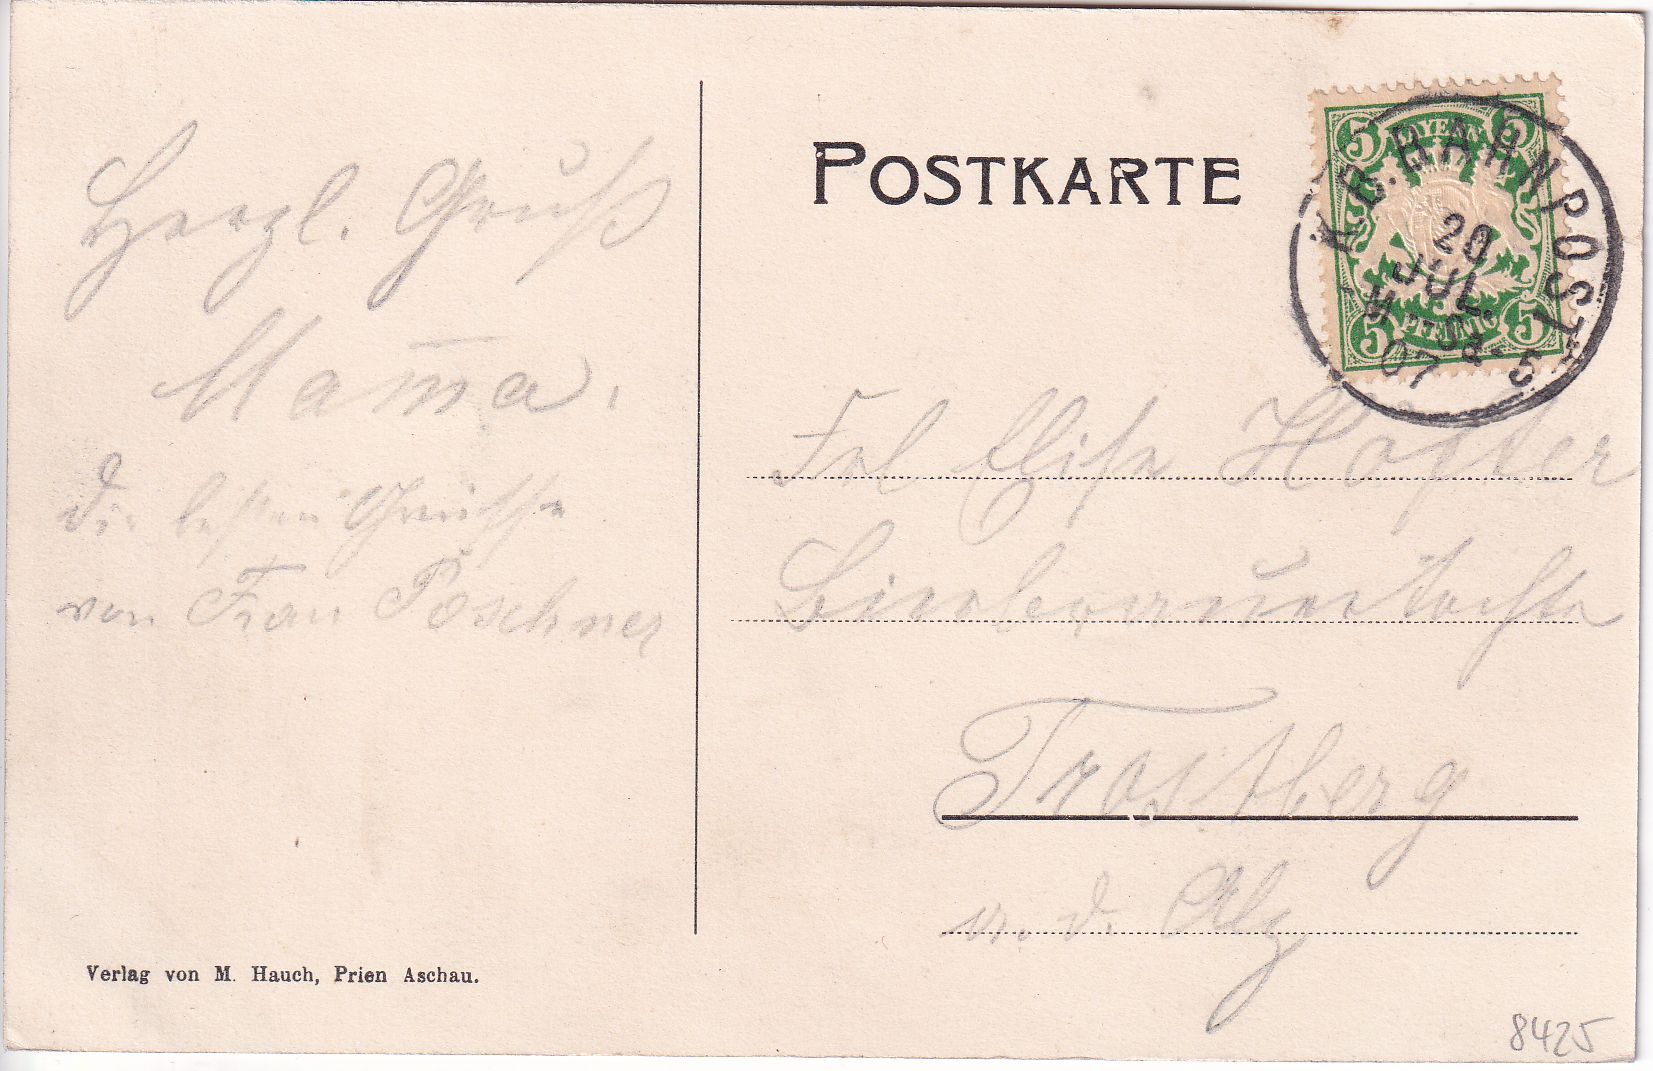 POSTKARTE
5 BAYERN 5
5 PFENNIG 5
K. B. BAHNPOST
20
JUL.
07
Herzl. Gruß
Mama.
Die besten Grüsse
von Frau Poschner
Frl Elisa Hofter
Bierbrauerstochter
Trostberg
a. d. Alz
Verlag von M. Hauch, Prien Aschau.
8425